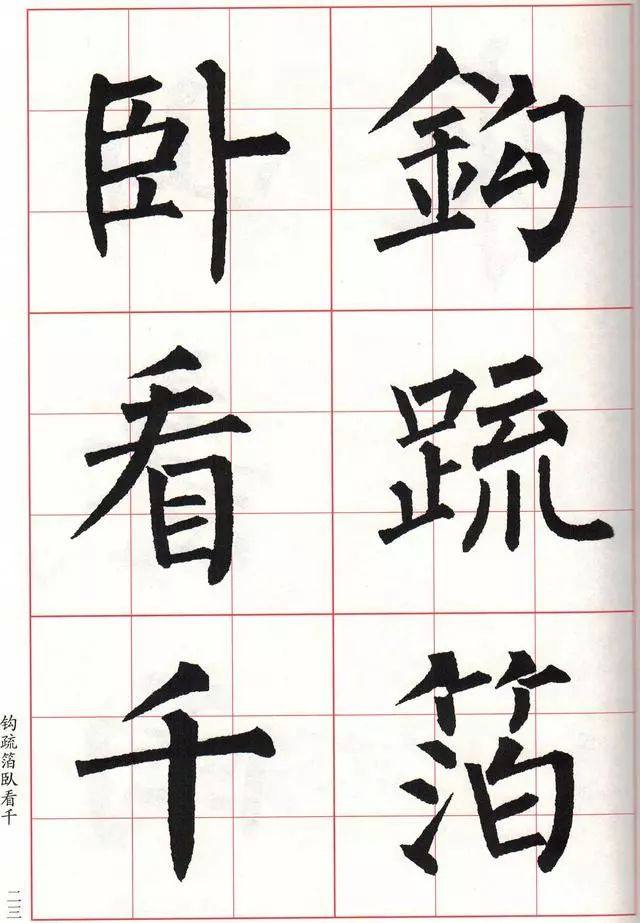 鈎疏箔
卧看千
钩疏箔卧看千
二二三